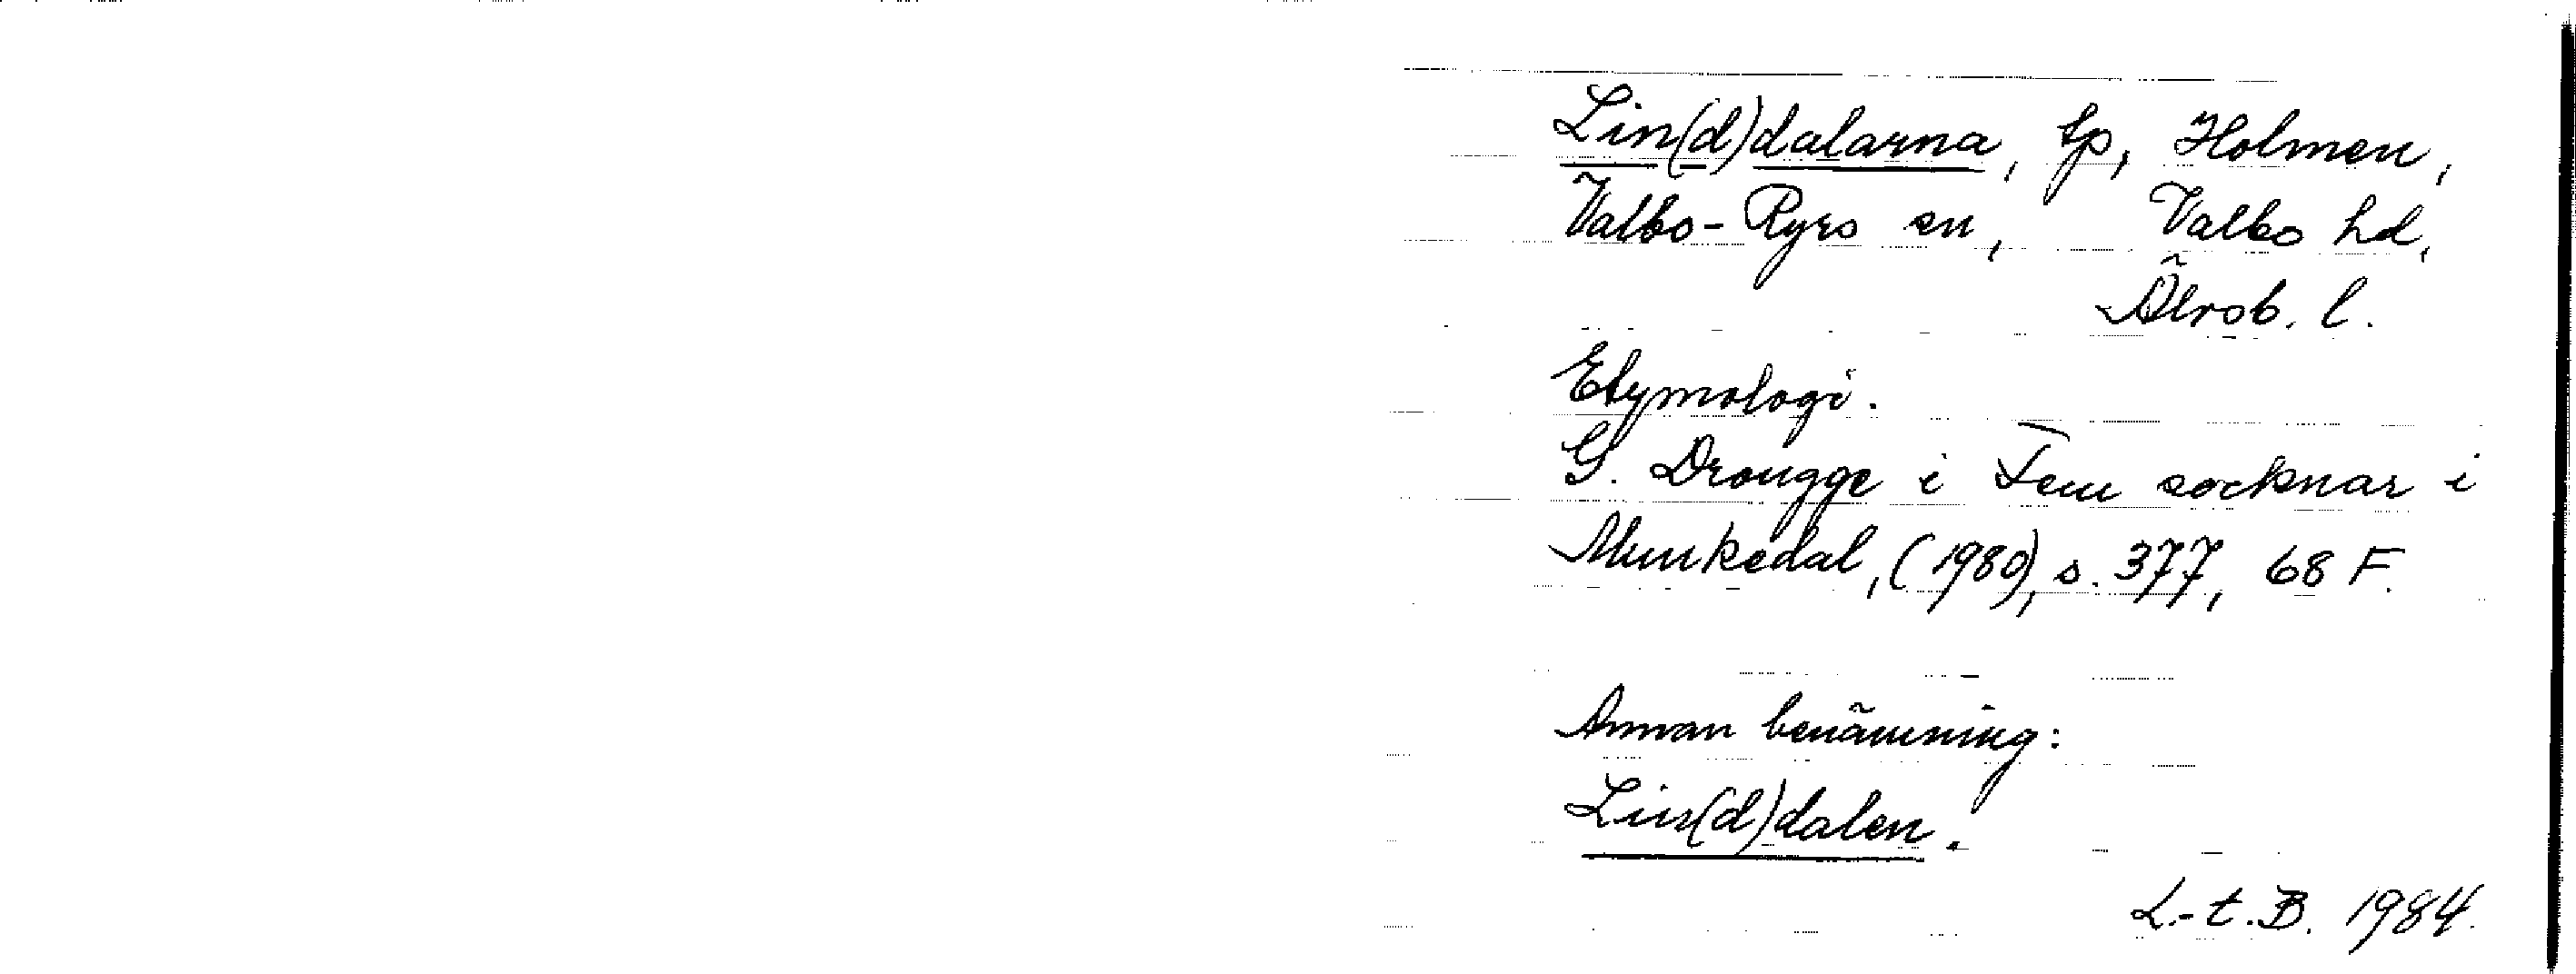 Lin(d)dalarna, tp, Holmen,
Valbo-Ryrs sn, Valbo hd,
Älvsb. l.
Etymologi.
G. Drougge i Fem socknar i
Munkedal, (1980), s. 377, 68 F.
Annan benämning:
Lin(d)dalen.
L.-t. B. 1984.